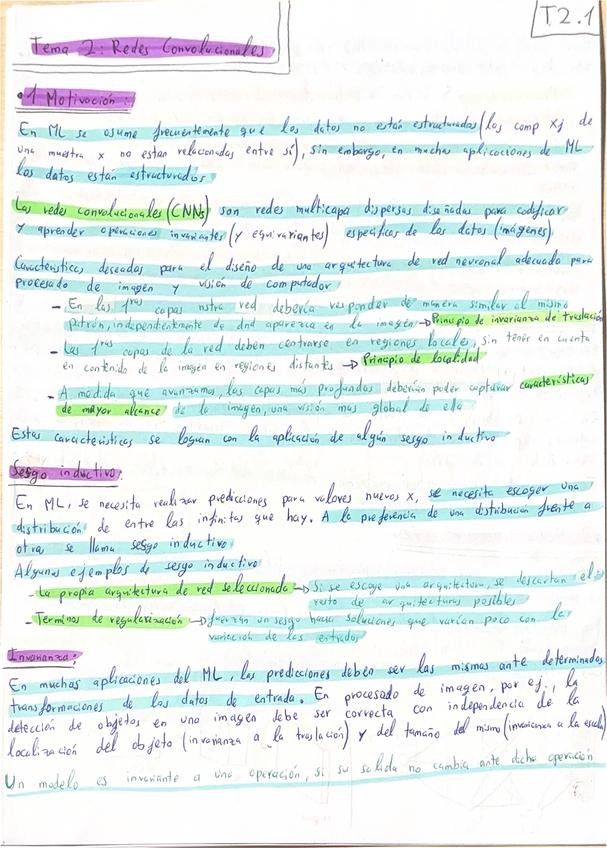 T2.1
Tema 2: Redes Convolucionales
1 Motivación:
En ML se asume frecuentemente que los datos no están estructurados (los comp xj de
una muestra x no estan relacionadas entre sí), sin embargo, en muchas aplicaciones de ML
los datos están estructurados
Las redes convolucionales (CNNs) son redes multicapa dispersas diseñadas para codificar
y aprender operaciones invariantes (y equivariantes) especificas de los datos (imágenes)
Caracteristicas deseadas para el diseño de una arquitectura de red neuronal adecuado para
procesado de imagen y visión de computador
- En las 1ras capas nstra red debería responder de manera similar al mismo
patrón, independientemente de dnd aparezca en la imagen → Principio de invarianza de traslación
- Las 1ras capas de la red deben centrarse en regiones locales, sin tener en cuenta
en contenido de la imagen en regiones distantes → Principio de localidad
- A medida que avanzamos, las capas más profundas deberían poder capturar características
de mayor alcance de la imagen, una visión mas global de ella
Estas caracteristicas se logran con la aplicación de algún sesgo inductivo
Sesgo inductivo:
En ML, se necesita realizar predicciones para valores nuevos x, se necesita escoger una
distribución de entre las infinitas que hay. A la preferencia de una distribución frente a
otras se llama sesgo inductivo
Algunos ejemplos de sesgo inductivo
- La propia arquitectura de red seleccionada → Si se escoge una arquitectura, se descartan el
resto de arquitecturas posibles
- Terminos de regularización → fuerzan un sesgo hacia soluciones que varían poco con la
variación de las entrados
Invarianza:
En muchas aplicaciones del ML, las predicciones deben ser las mismas ante determinadas
transformaciones de los datos de entrada. En procesado de imagen, por ej., la
detección de objetos en una imagen debe ser correcta con independencia de la
localización del objeto (invarianza a la traslación) y del tamaño del mismo (invarianza a la escala)
Un modelo es invariante a una operación, si su salida no cambia ante dicha operación